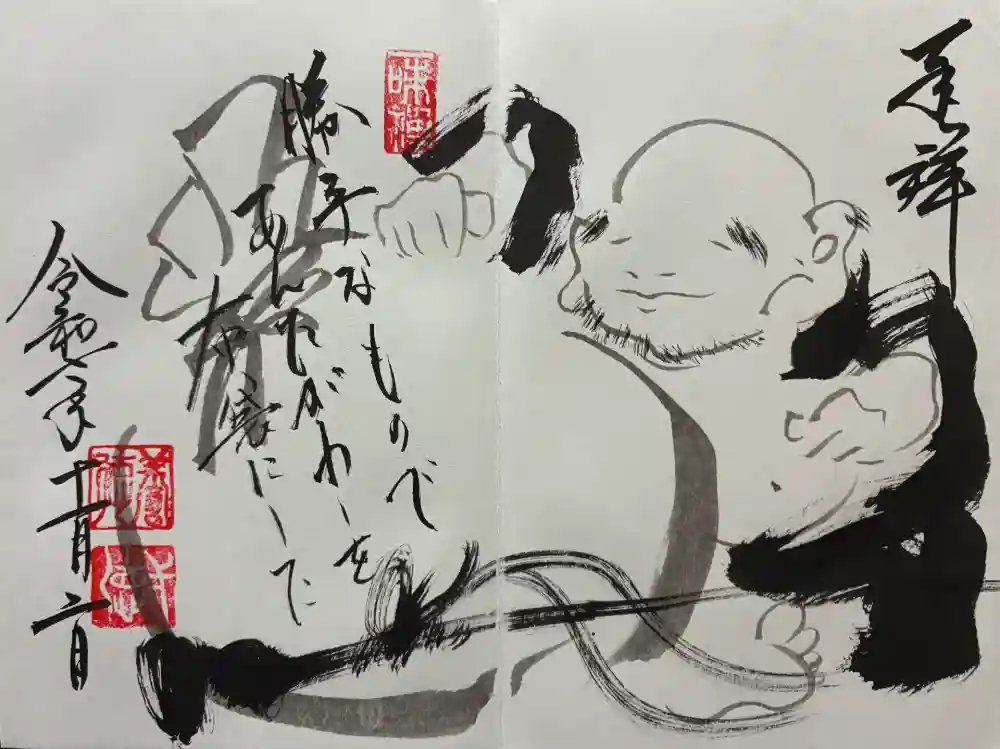 祥
勝手なもので
あんたがわしを
布袋にした
令和七年十一月二日